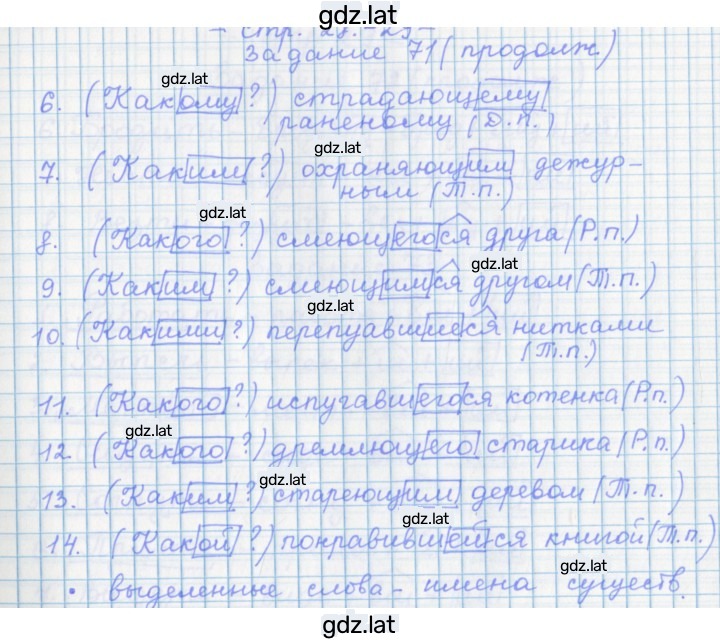 gdz.lat
- стр. 28.-29 -
Задание 71 (продолж.)
gdz.lat
6. (Какому?) страдающему
раненому (Д.п.)
gdz.lat
7. (Каким?) охраняющим дежур-
ным (Т.п.)
gdz.lat
8. (Какого?) смеющегося друга (Р.п.)
gdz.lat
9. (Каким?) смеющимся другом (Т.п.)
gdz.lat
10. (Какими?) перепуавшиеся нитками
(Т.п.)
11. (Какого?) испугавшегося котенка (Р.п.)
gdz.lat
12. (Какого?) дремлющего старика (Р.п.)
gdz.lat
13. (Каким?) стареющим деревом (Т.п.)
gdz.lat
14. (Какой?) понравившейся книгой (Т.п.)
• выделенные слова - имена существ.
gdz.lat